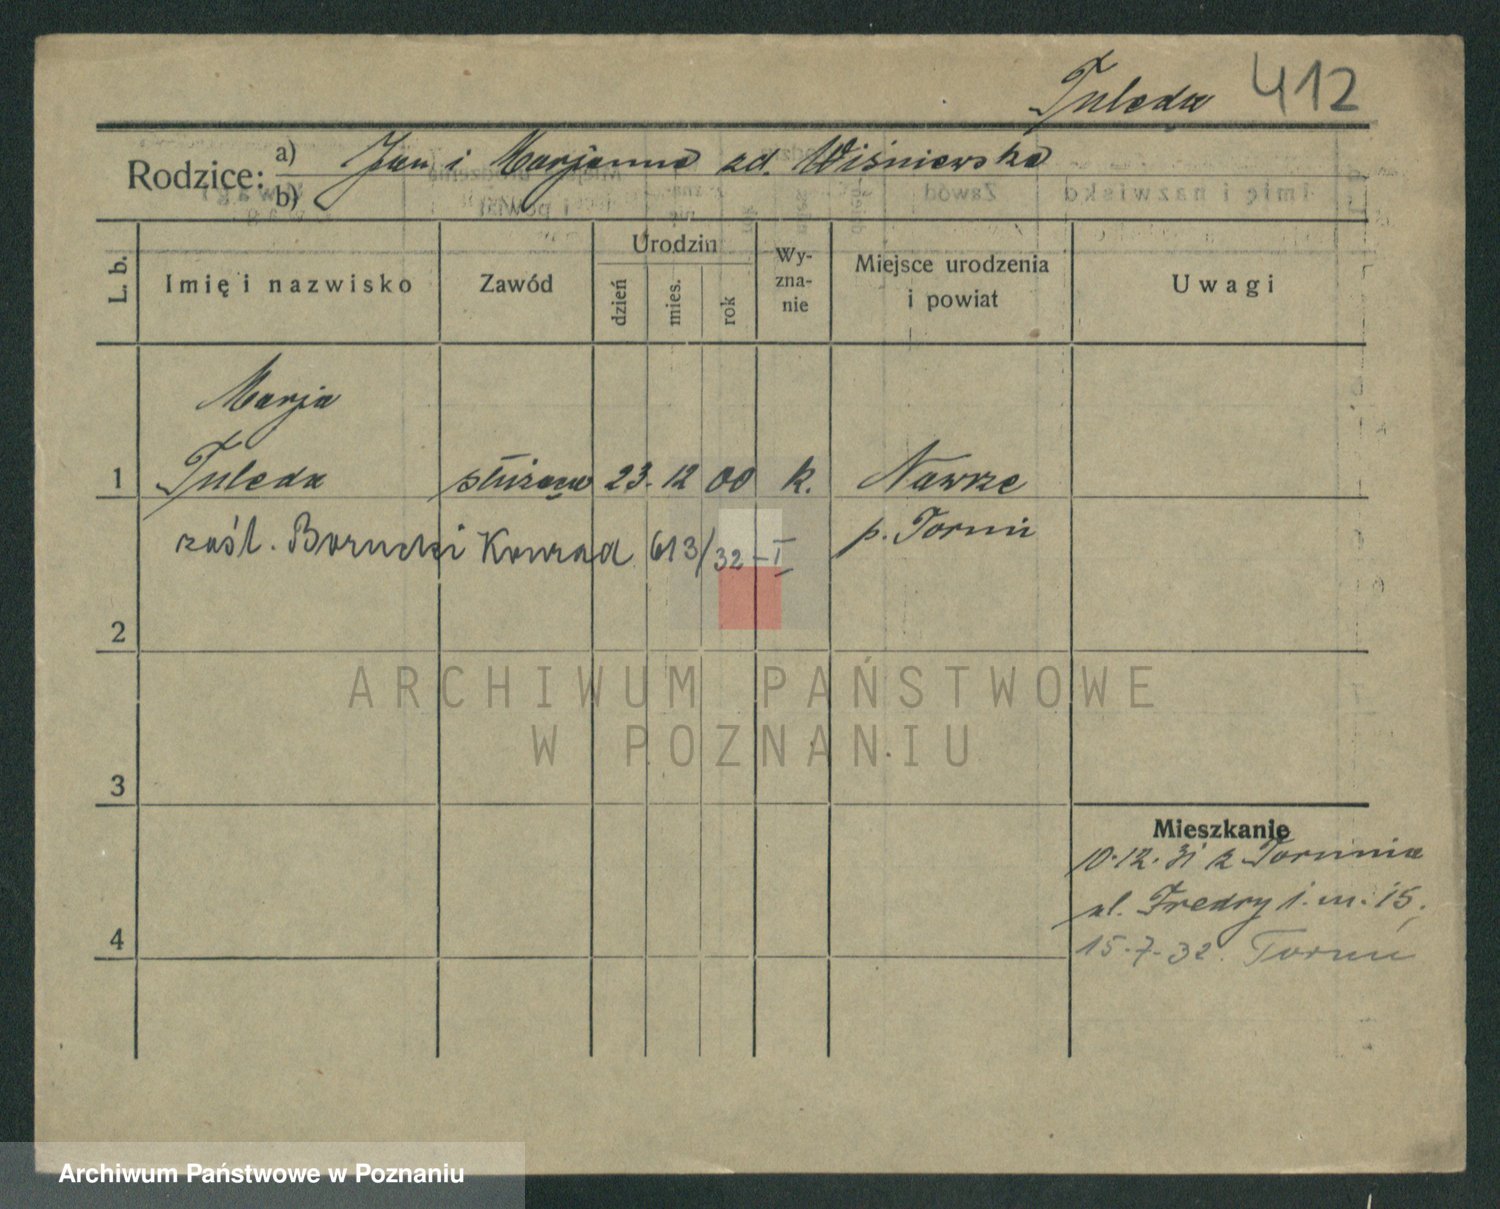 Tuleda 412
Rodzice: a) Jan i Marjanna zd. Wiśniewska
b)
L. b. Imię i nazwisko Zawód Urodzin dzień mies. rok Wy-zna-nie Miejsce urodzenia i powiat Uwagi
Marja
1 Tuleda służąca 23. 12 00 k. Nawrze
zaśl. Borucki Konrad 613/32-I p. Toruń
2
ARCHIWUM PAŃSTWOWE
W POZNANIU
3
Mieszkanie
10.12.31 z Torunia
ul. Fredry 1. m. 15.
4 15.7.32. Toruń
Archiwum Państwowe w Poznaniu